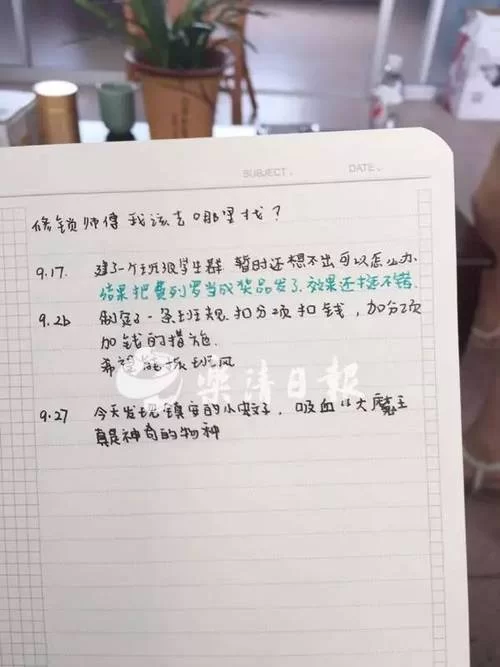 SUBJECT.
DATE.
修锁师傅 我该去哪里找？
9.17. 建了一个班级学生群 暂时还想不出可以怎么办.
结果把费列罗当成奖品发了.效果还挺不错.
9.26 制定了一条班规 扣分项 扣钱,加分项
加钱的措施.
希望能扳班风
9.27 今天发现镇安的小蚊子, 吸血大魔王
真是神奇的物种
乐清日报